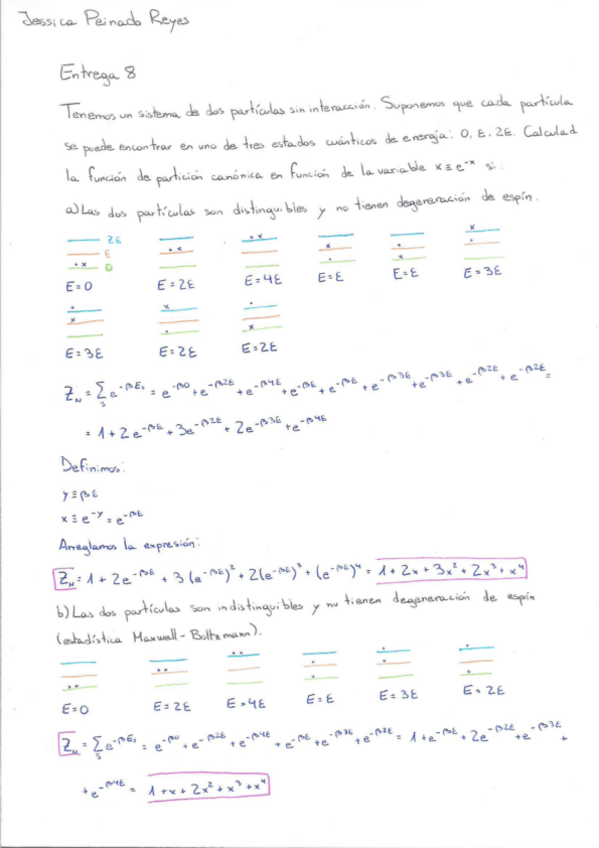 Jessica Peinado Reyes
Entrega 8
Tenemos un sistema de dos partículas sin interacción. Suponemos que cada partícula
se puede encontrar en uno de tres estados cuánticos de energía: 0, ε, 2ε. Calculad
la función de partición canónica en función de la variable x ≡ e^{-x} si:
a) Las dos partículas son distinguibles y no tienen degeneración de espín.
2ε
ε
0
E=0 E=2ε E=4ε E=ε E=ε E=3ε
E=3ε E=2ε E=2ε
Z_N = Σ_s e^{-βE_s} = e^{-β0} + e^{-β2ε} + e^{-β4ε} + e^{-βε} + e^{-βε} + e^{-β3ε} + e^{-β3ε} + e^{-β2ε} + e^{-β2ε} =
= 1 + 2e^{-βε} + 3e^{-β2ε} + 2e^{-β3ε} + e^{-β4ε}
Definimos:
y ≡ βε
x ≡ e^{-y} = e^{-βε}
Arreglamos la expresión:
Z_N = 1 + 2e^{-βε} + 3(e^{-βε})^2 + 2(e^{-βε})^3 + (e^{-βε})^4 = 1 + 2x + 3x^2 + 2x^3 + x^4
b) Las dos partículas son indistinguibles y no tienen degeneración de espín
(estadística Maxwell-Boltzmann).
E=0 E=2ε E=4ε E=ε E=3ε E=2ε
Z_N = Σ_s e^{-βE_s} = e^{-β0} + e^{-β2ε} + e^{-β4ε} + e^{-βε} + e^{-β3ε} + e^{-β2ε} = 1 + e^{-βε} + 2e^{-β2ε} + e^{-β3ε} +
+ e^{-β4ε} = 1 + x + 2x^2 + x^3 + x^4